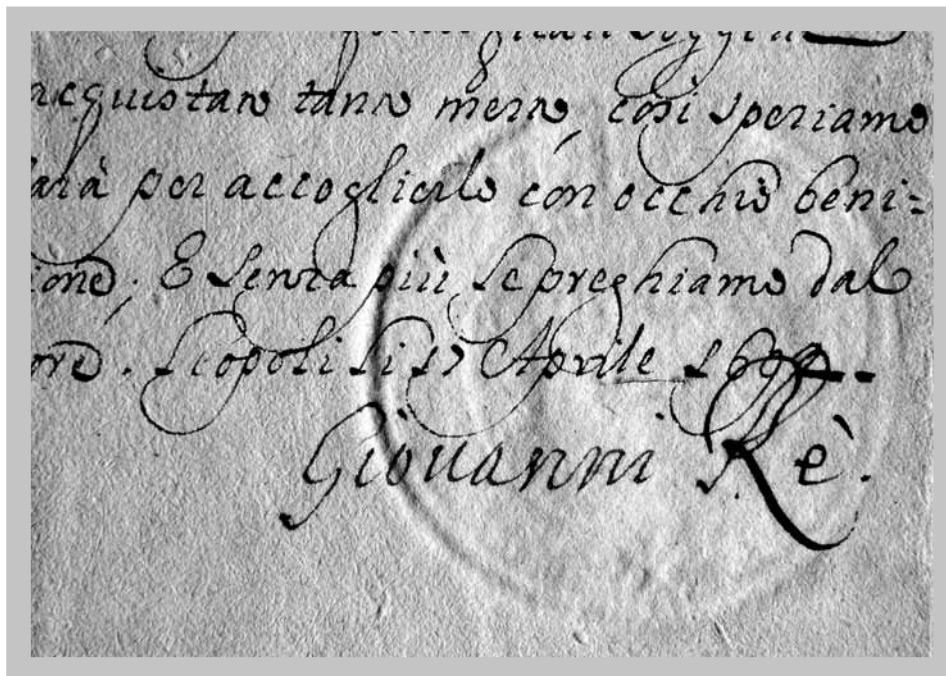 acquistar tann mern, così speriamo
arà per accoglierlo con occhio beni=
ione; E senza più Le preghiamo dal
ore. Leopoli li 17 Aprile
Giovanni Rè.